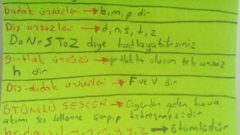 Dudak ünsüzleri → b, m, p dir
Diş ünsüzleri → d, n, s, t, z
DoNeSToZ diye kodlayabilirsiniz
Gırtlak ünsüzü → gırtlakta oluşan tek ünsüz
h dir
Diş-dudak ünsüzleri → F ve V dir
ÖTÜMLÜ SESLER → Ciğerden gelen hava
akımı ses tellerine çarpıp titreşmesidir
ötümlüdür